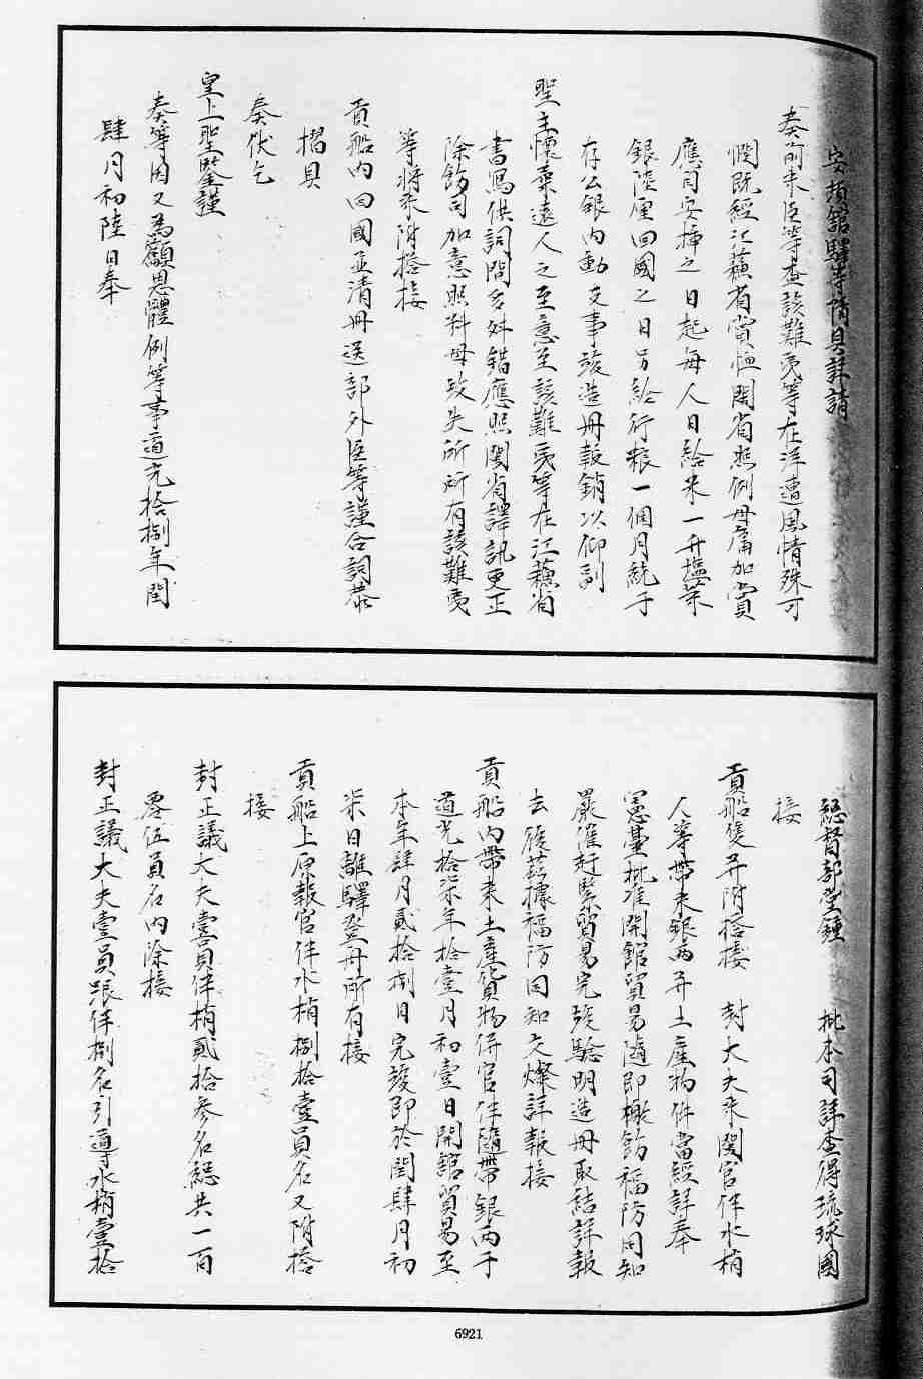 安頓館驛等情具詳請
奏前來臣等查該難夷等在洋遭風情殊可
憫既經江蘇省賞恤閩省照例毋庸加賞
應同安挿之日起每人日給米一升塩菜
銀陸厘回國之日另給行粮一個月統于
存公銀內動支事竣造册報銷以仰副
聖主懷柔遠人之至意至該難夷等在江蘇省
書寫供詞間多舛錯應照閩省譯訊更正
除飭司加意照料毋致失所所有該難夷
等將來附搭接
貢船內回國並清册送部外臣等謹合詞恭
摺具
奏伏乞
皇上聖鑒謹
奏等因又為顧恩體例等事道光拾捌年閏
肆月初陸日奉
總督部堂鍾 批本司詳查得琉球國
接
貢船隻并附搭接 封大夫來閩官伴水梢
人等帶來銀兩并土産物件當經詳奉
憲臺批准開館貿易隨即檄飭福防同知
嚴催趕緊貿易完竣驗明造册取結詳報
去後茲據福防同知文燦詳報接
貢船內帶來土産貨物併官伴隨帶銀両于
道光拾柒年拾壹月初壹日開館貿易至
本年肆月貳拾捌日完竣即於閏肆月初
柒日離驛登舟所有接
貢船上原報官伴水梢捌拾壹員名又附搭
接
封正議大夫壹員伴梢貳拾参名總共一百
零伍員名內除接
封正議大夫壹員跟伴捌名引導水梢壹拾
6921